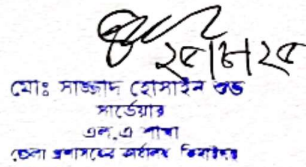 ২৫/৮/২৫
মোঃ সাজ্জাদ হোসাইন শুভ
সার্ভেয়ার
এল,এ শাখা
জেলা প্রশাসকের কার্যালয় দিনাজপুর